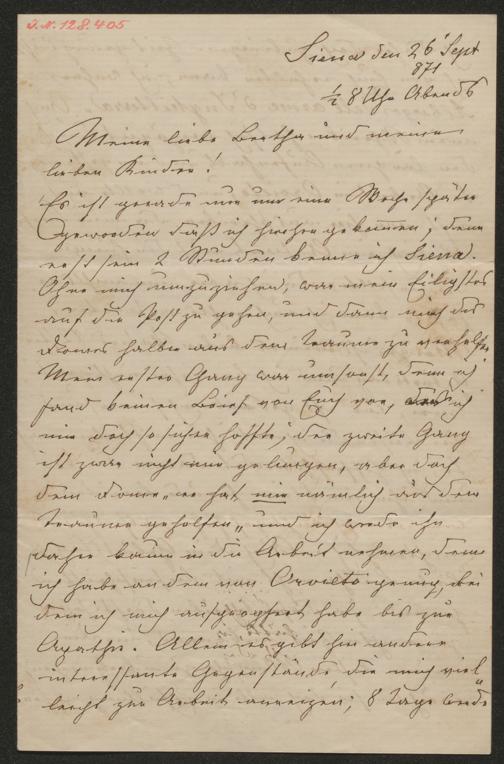 J.N. 128.405
Siena den 26' Sept
871
½ 8 Uhr Abends
Meine liebe Bertha und meine
lieben Kinder!
Es ist gerade nun um eine Woche später
geworden daß ich hierher gekommen; denn
erst sein 2 Stunden kenne ich Siena.
Ohne mich umzuziehen, war mein Eiligstes
auf die Post zu gehen, und dann mich des
Domes halber aus dem Traume zu verhelfen
Mein erster Gang war umsonst, denn ich
fand keinen Brief von Euch vor, ich
nun doch so sicher hoffte; der zweite Gang
ist zwar nicht gelungen, aber doch
dem Dome „er hat mir nämlich aus dem
Traume geholfen„ und ich werde ihn
daher kaum in die Arbeit nehmen, denn
ich habe an dem von Orvieto genug, bei
dem ich mich aufgeopfert habe bis zur
Apathie. Allein es gibt hier andere
interessante Gegenstände, die mich viel„
leicht zur Arbeit anreizen; 8 Tage werde